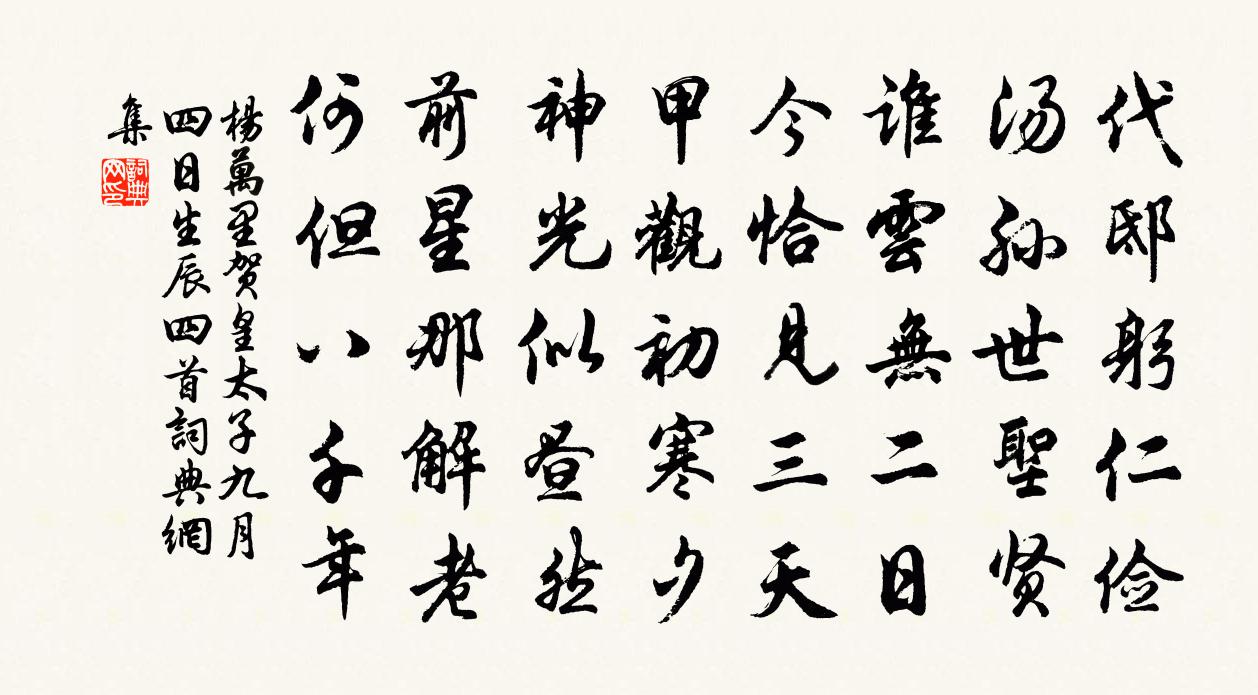 代邸躬仁俭
汤孙世聖贤
谁雲無二日
今恰見三天
甲觀初寒夕
神光似昼然
前星那解老
何但八千年
楊萬里贺皇太子九月
四日生辰四首詞典網
集
詞典
网印